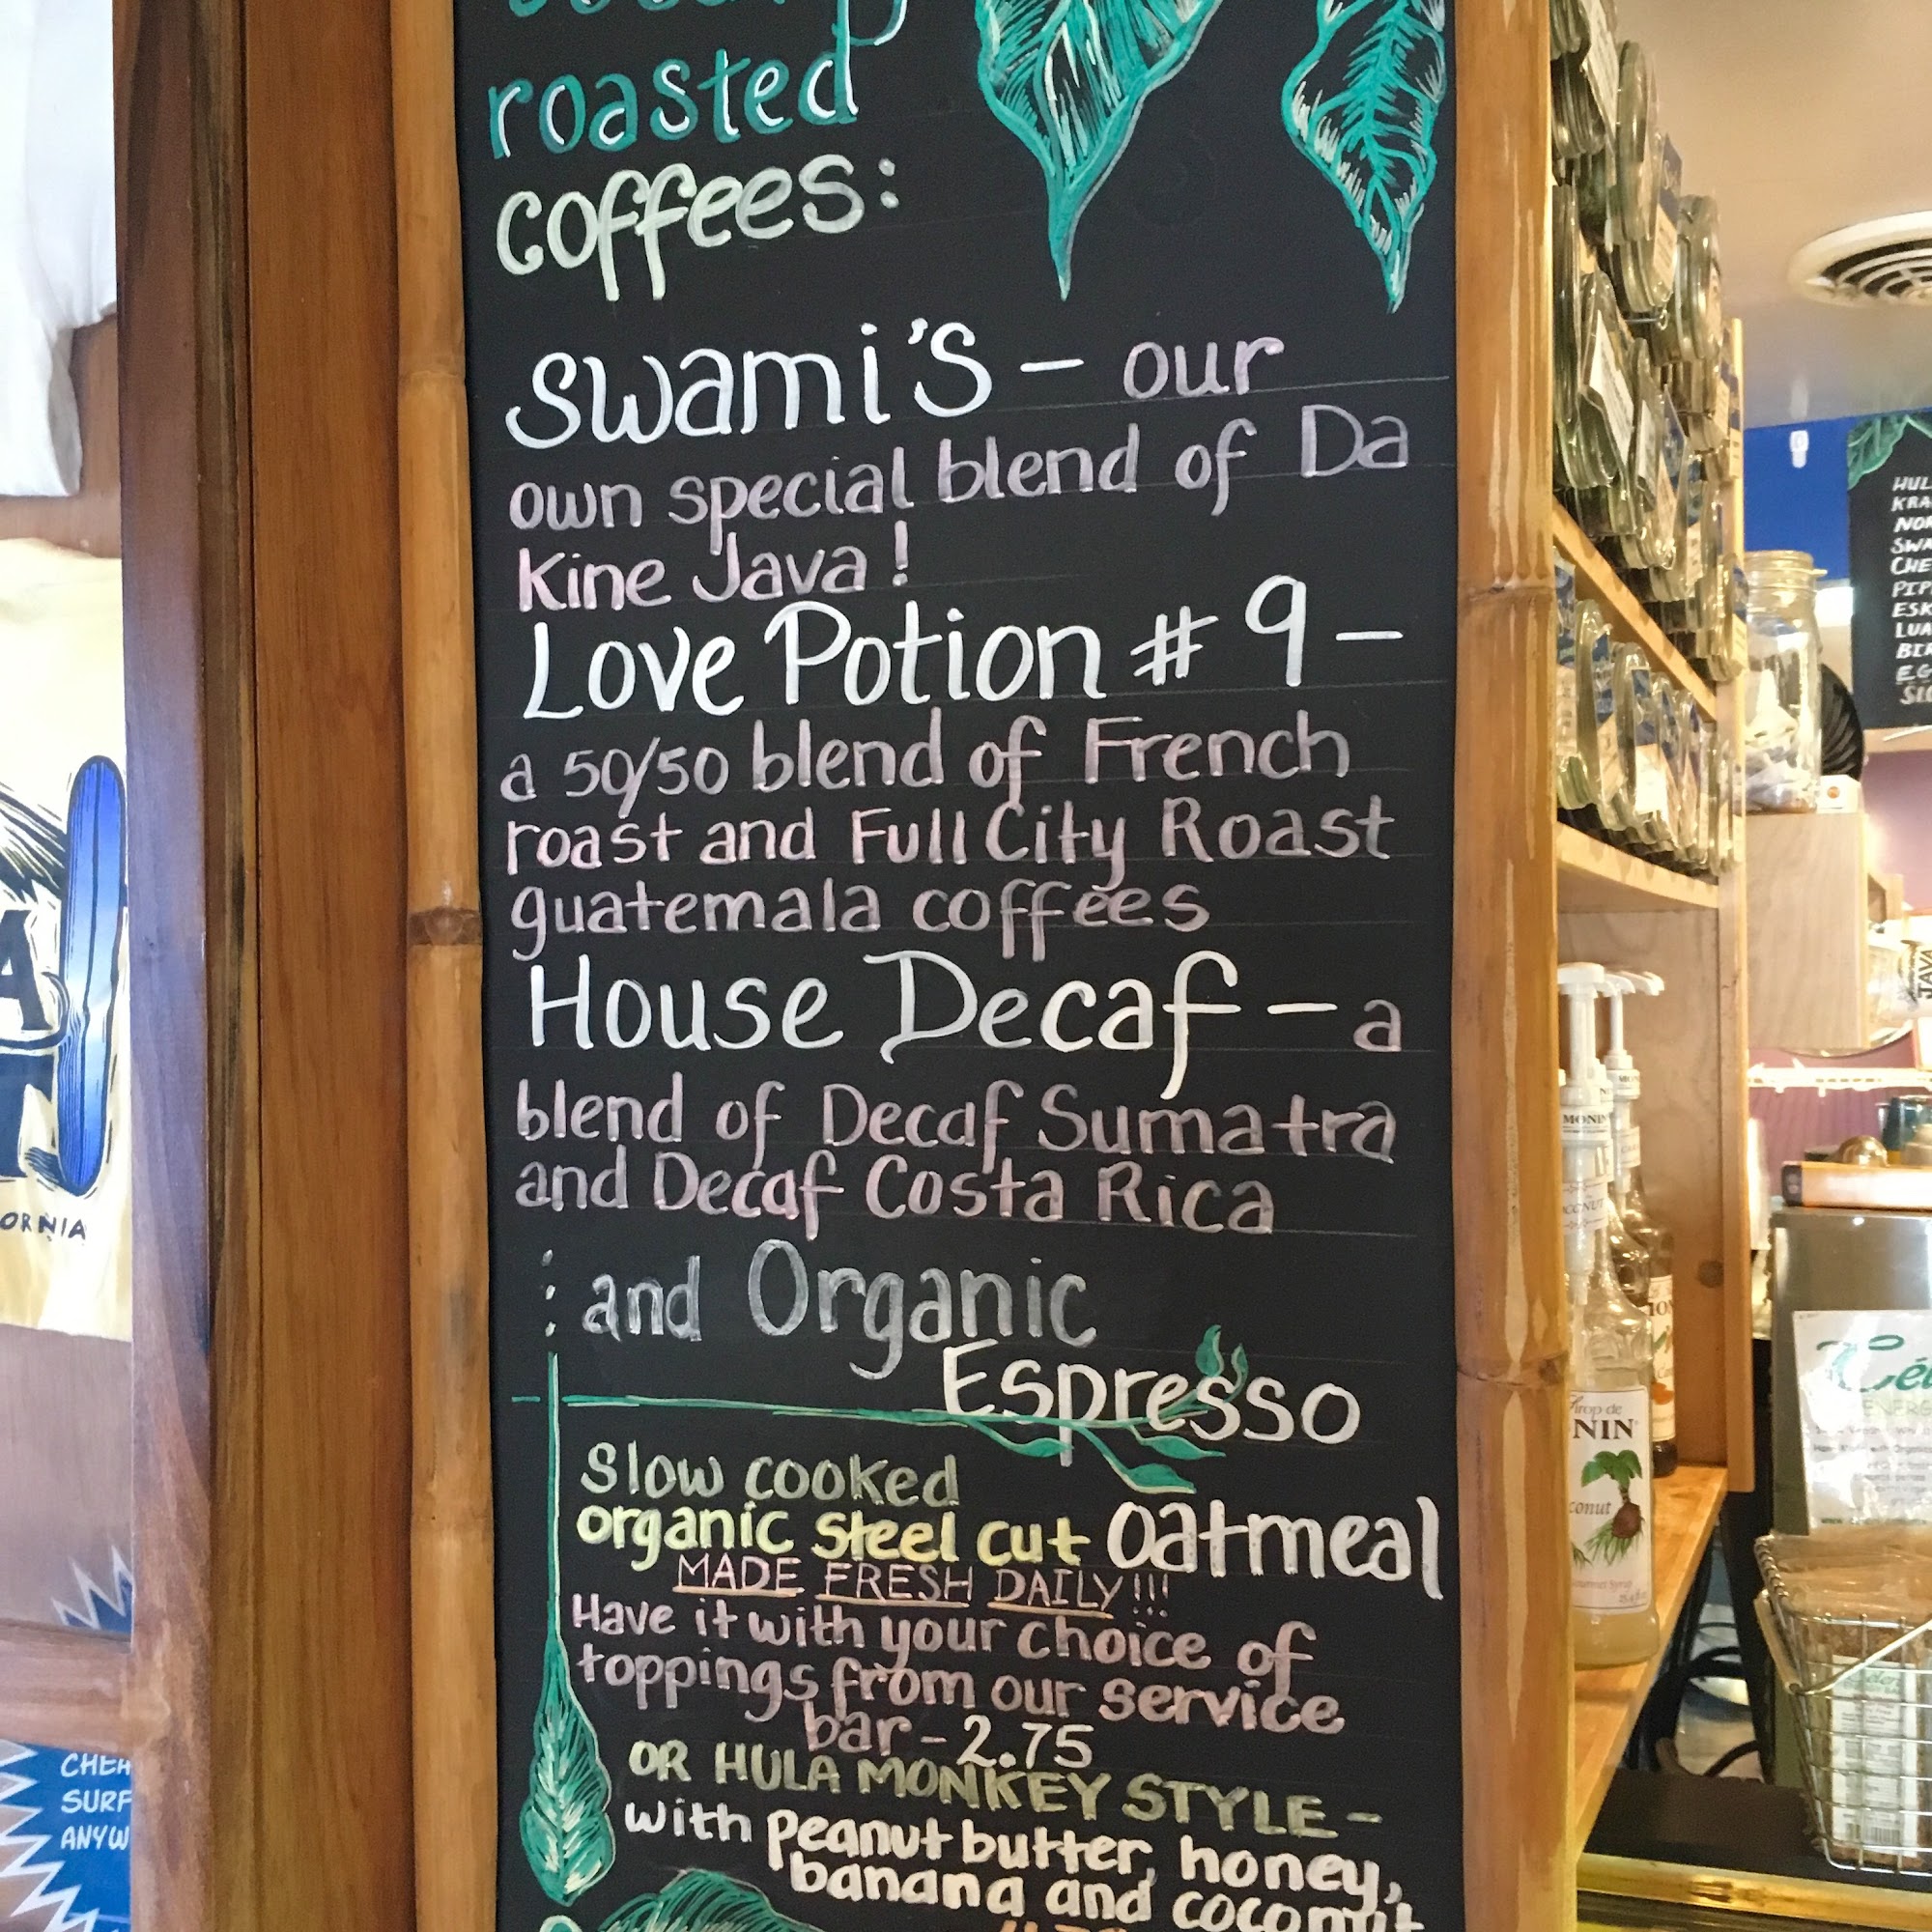 roasted
coffees:
Swami's - our
own special blend of Da
Kine Java!
Love Potion # 9 -
a 50/50 blend of French
roast and Full City Roast
guatemala coffees
House Decaf - a
blend of Decaf Sumatra
and Decaf Costa Rica
and Organic
Espresso
Slow cooked
organic steel cut oatmeal
MADE FRESH DAILY!!!
Have it with your choice of
toppings from our service
bar - 2.75
OR HULA MONKEY STYLE -
with peanut butter, honey,
banana and coconut
A
ORNIA
CHEA
SURF
ANYW
HUL
KRA
NO
SWA
CHE
PIP
ESK
LUA
BIR
EG
MONIN
Sirop de
NIN
conut
Cé
ENERG
JAVA